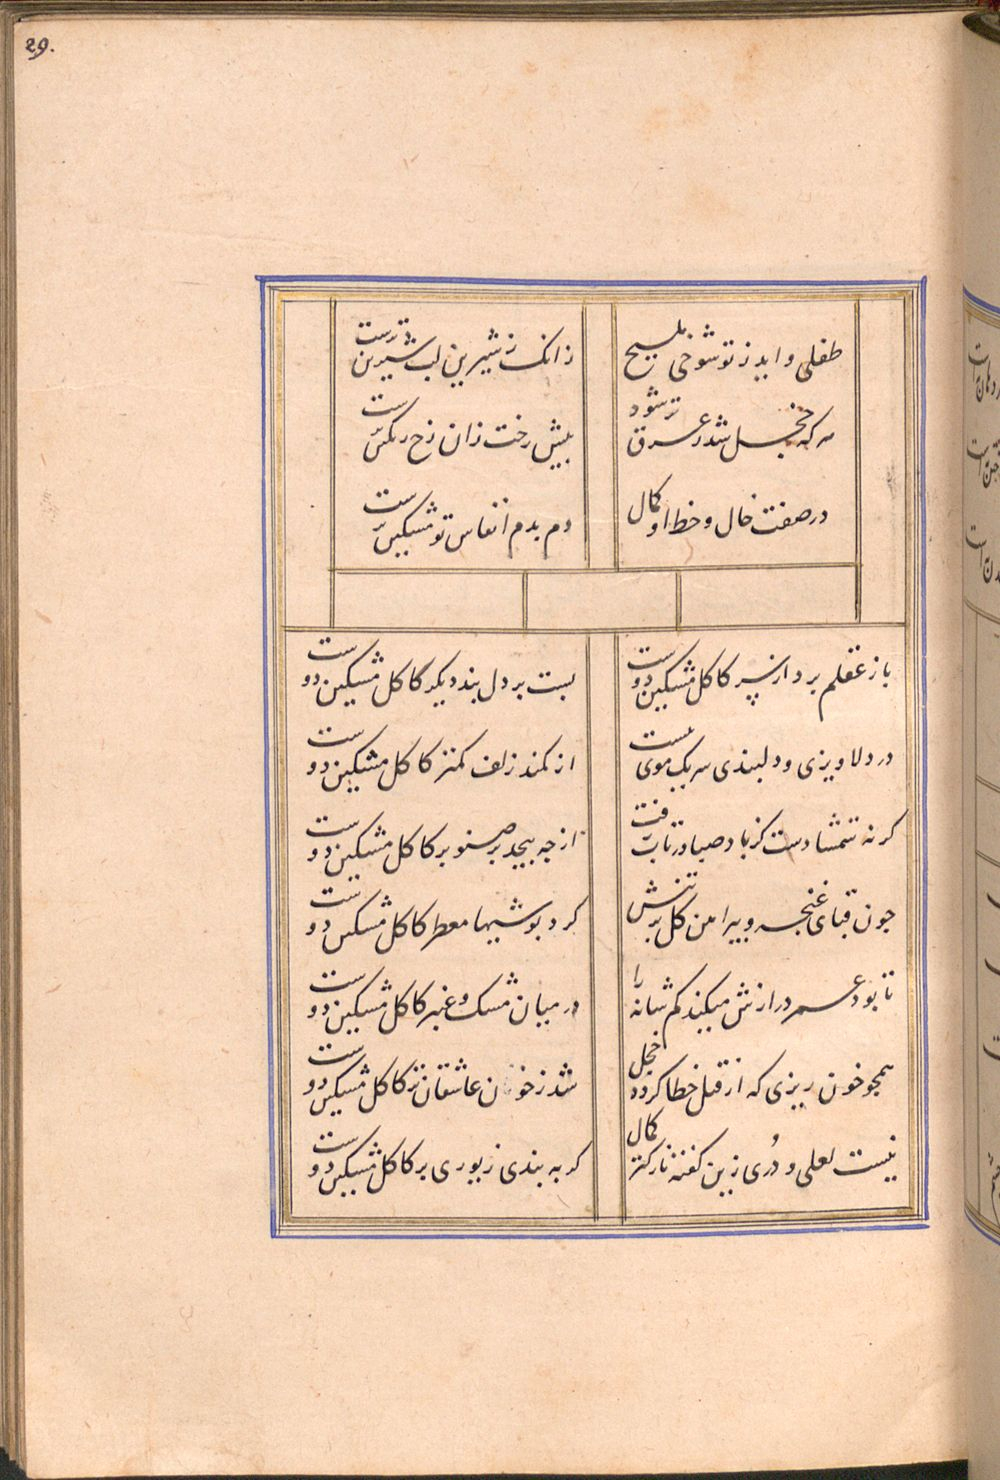 29.
طفلی و اید ز تو شوخی ملیح
زانک ز شیرین لب شیرین‌ترست
که خجل شد ز عرق تر شود
پیش رخت زان رخ رنگین‌ترست
در صفت خال و خط او کمال
دم بدم انفاس تو مشکین‌ترست
باز عقلم برد از سر کاکل مشکین دوست
بست بر دل بند دیگر کاکل مشکین دوست
در دلاویزی و دلبندی سر یک موی نیست
از کمند زلف کمتر کاکل مشکین دوست
کرنه شمشادست کز باد صبا در تاب رفت
از چه پیچد بر صنوبر کاکل مشکین دوست
چون قبای غنچه و پیراهن کل بر تنش
کرد پوشیها معطر کاکل مشکین دوست
تا بود عمر درازش میکند کم شانه را
در میان مشک و عنبر کاکل مشکین دوست
همچو خون ریزی که از قتل خطا کردد خجل
شد ز خون عاشقان تر کاکل مشکین دوست
نیست لعلی و دری زین کفته نازکتر کمال
کر به بندی زیوری بر کاکل مشکین دوست